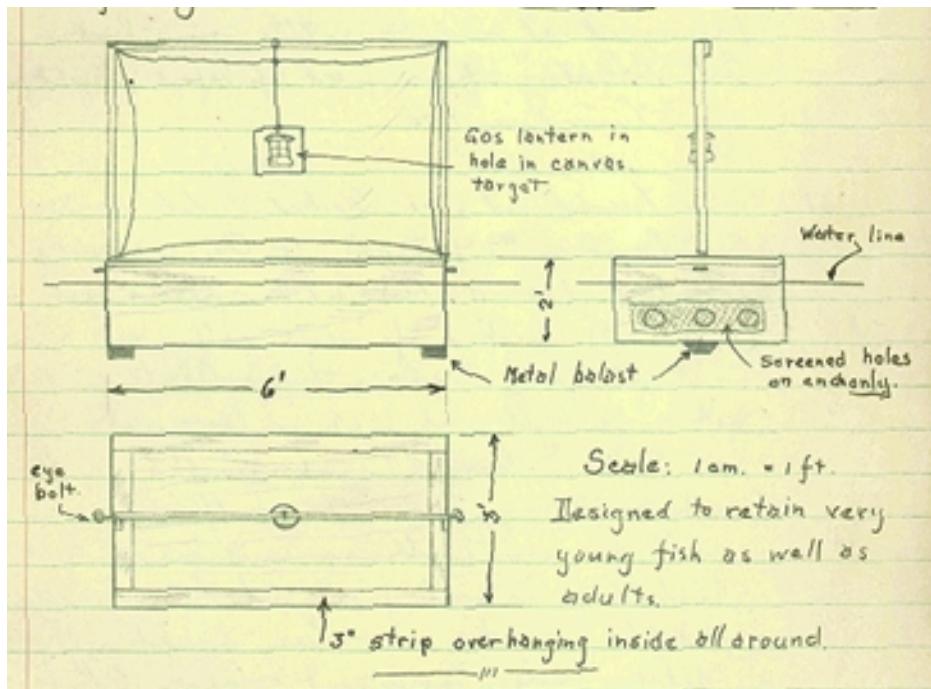 Gas lantern in
hole in canvas
target.
Water line
2'
Metal balast
Screened holes
on end only.
6'
eye
bolt.
3'
Scale: 1 cm. = 1 ft.
Designed to retain very
young fish as well as
adults.
3" strip overhanging inside all around.